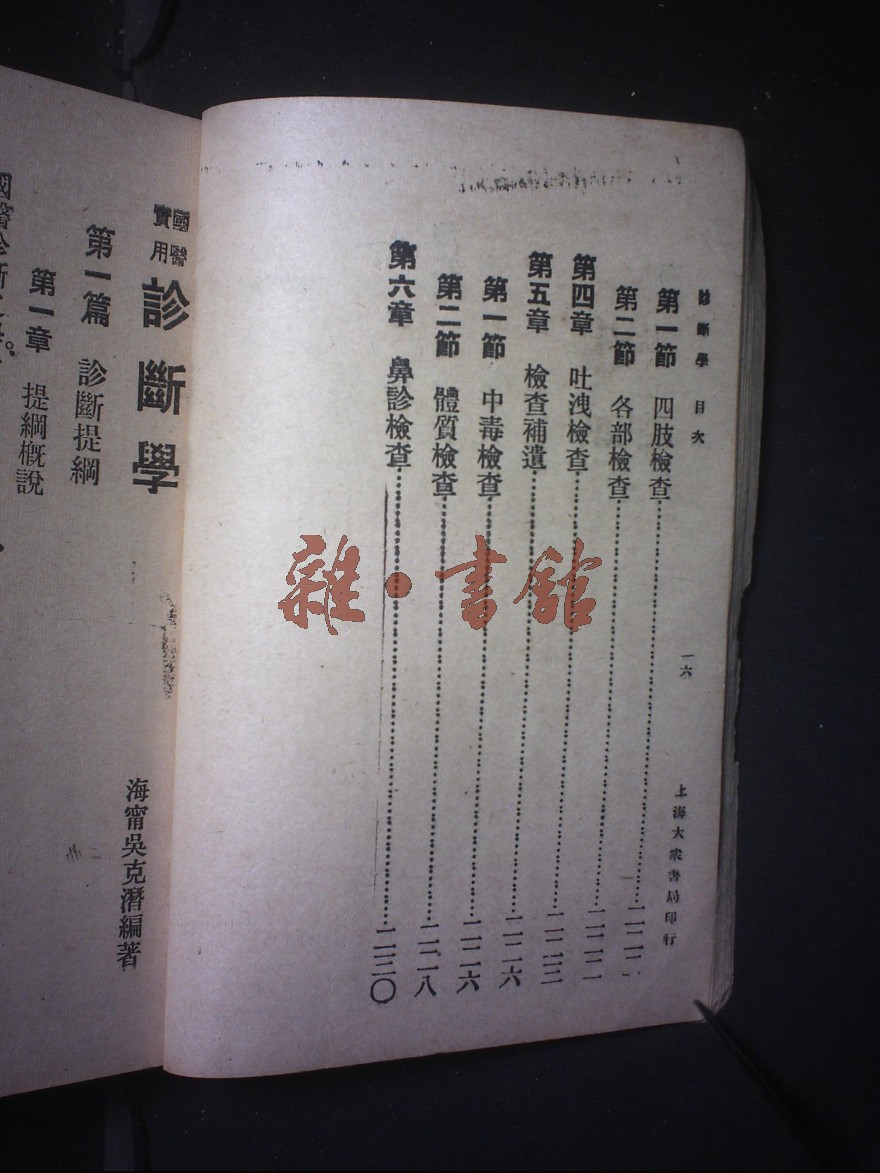 診斷學 目次 一六 上海大衆書局印行
第一節 四肢檢查
第二節 各部檢查
第四章 吐洩檢查
第五章 檢查補遺……二二三
第一節 中毒檢查……二二六
第二節 體質檢查……二二八
第六章 鼻診檢查……二三〇
國醫
實用
診斷學
海甯吳克潛編著
第一篇 診斷提綱
第一章 提綱概說
國醫診斷